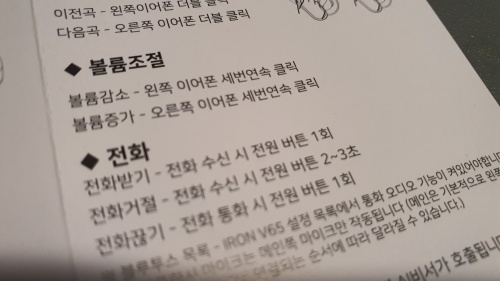 이전곡 - 왼쪽이어폰 더블 클릭
다음곡 - 오른쪽 이어폰 더블 클릭
◆ 볼륨조절
볼륨감소 - 왼쪽 이어폰 세번연속 클릭
볼륨증가 - 오른쪽 이어폰 세번연속 클릭
◆ 전화
전화받기 - 전화 수신 시 전원 버튼 1회
전화거절 - 전화 수신 시 전원 버튼 2~3초
전화끊기 - 전화 통화 시 전원 버튼 1회
블루투스 목록 - IRON V65 설정 목록에서 통화 오디오 기능이 켜있어야합니다
마이크는 메인쪽 마이크만 작동됩니다 (메인은 기본적으로 왼쪽
연결되는 순서에 따라 달라질 수 있습니다.)
호출됩니다